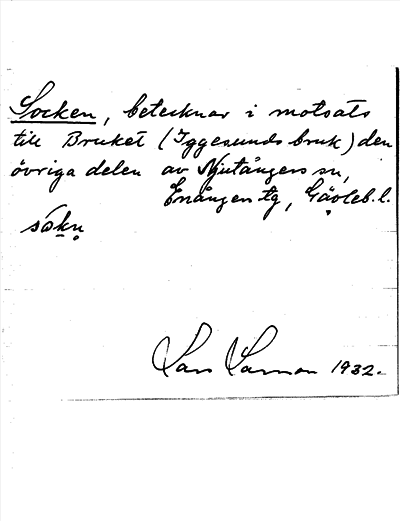 Socken, betecknar i motsats
till Bruket (Iggesunds bruk) den
övriga delen av Njutångers sn,
Enånger tg, Gävleb. l.
såkņ
Lars 1932.